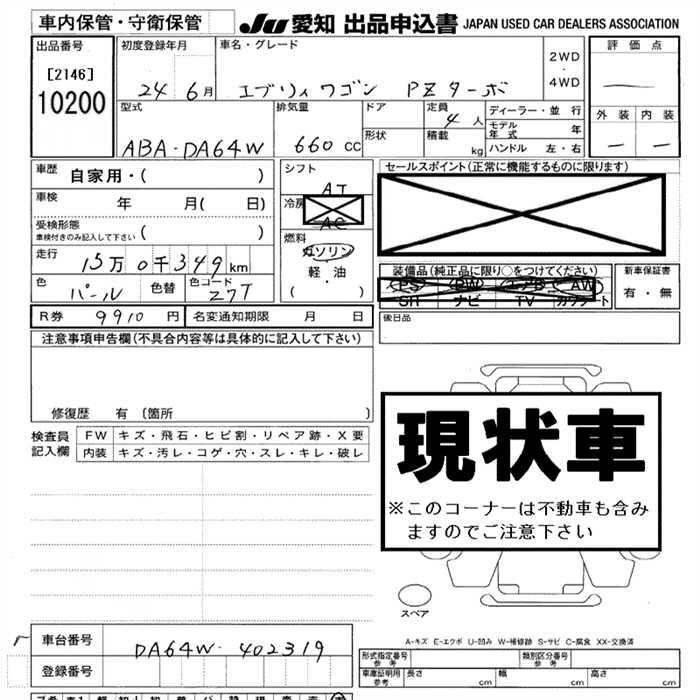 車内保管・守衛保管 JU 愛知 出品申込書 JAPAN USED CAR DEALERS ASSOCIATION
出品番号 初度登録年月 車名・グレード 評価点
[2146] 10200 24 6月 エブリィワゴン PZターボ 2WD・4WD
型式 排気量 ドア 定員 4人 ディーラー・並行 外装 内装
ABA-DA64W 660 CC 形状 積載 kg モデル年式 年
ハンドル 左・右
車歴 自家用・( ) シフト AT セールスポイント(正常に機能するものに限ります)
車検 年 月( 日) 冷房 AC
受検形態
車検付きのみ記入して下さい ( ) 燃料 ガソリン
走行 15万0千349km 軽・油 装備品(純正品に限り○をつけてください) 新車保証書
色 パール 色替 色コード Z7T ・( ) PS PW エアB AW 有・無
SR ナビ TV カワシート
R券 9910円 名変通知期限 月 日 後日品
注意事項申告欄(不具合内容等は具体的に記入して下さい)
修復歴 有 〔箇所 〕
検査員記入欄 FW キズ・飛石・ヒビ割・リペア跡・X要
内装 キズ・汚レ・コゲ・穴・スレ・キレ・破レ
現状車
※このコーナーは不動車も含み
ますのでご注意下さい
スペア
A-キズ E-エクボ U-凹み W-補修跡 S-サビ C-腐食 XX-交換済
車台番号 DA64W-402319 形式指定番号 参考 類別区分番号 参考
登録番号 車庫証明用 参考 長さ cm 幅 cm 高さ cm